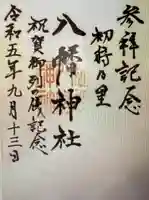 参拝記念
初狩乃里
八幡神社
祝賀御列の記念
令和五年九月十三日